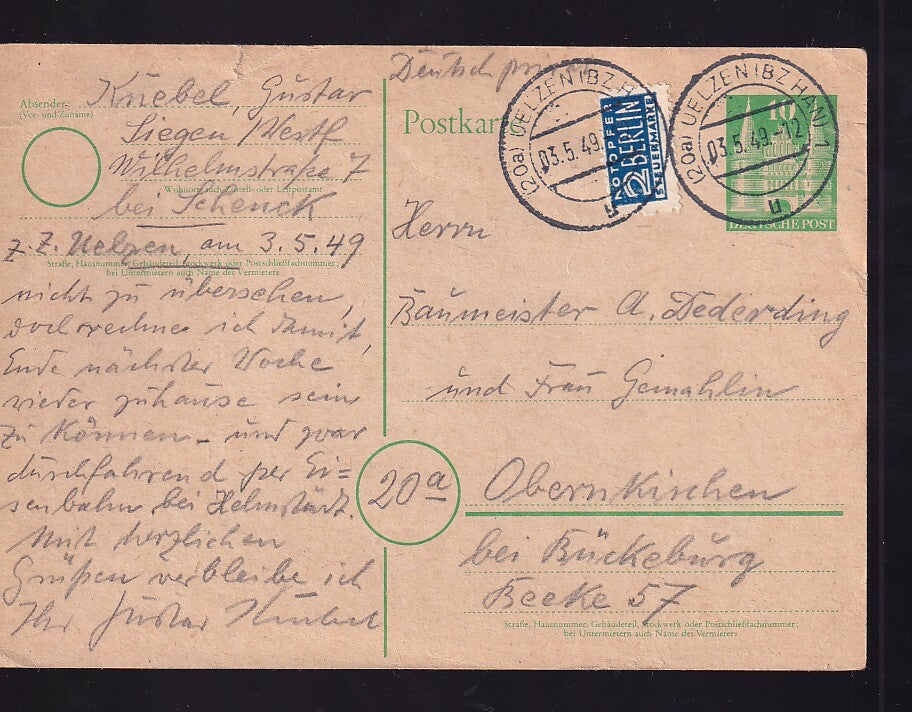 Deutsch
Absender:
(Vor- und Zuname)
Knebel, Gustav
Siegen/Westf
Wilhelmstraße 7
Wohnort, auch Zustell- oder Leitpostamt
bei Schenck
z. Z. Uelzen, am 3.5.49
Straße, Hausnummer, Gebäudeteil, Stockwerk oder Postschließfachnummer;
bei Untermietern auch Name des Vermieters
nicht zu übersehen,
doch rechne ich damit,
Ende nächster Woche
wieder zuhause sein
zu können - und zwar
durchfahrend per Ei=
senbahn bei Helmstädt.
Mit herzlichen
Grüßen verbleibe ich
Ihr Gustav Knebel
Postkarte
(20a) UELZEN (BZ. HANN)
03.5.49
NOTOPFER
2 BERLIN
STEUERMARKE
(20a) UELZEN (BZ. HANN) 1
03.5.49.-12
u
10
DEUTSCHE POST
Herrn
Baumeister A. Dederding
und Frau Gemahlin
20a
Obernkirchen
bei Bückeburg
Beeke 57
Straße, Hausnummer, Gebäudeteil, Stockwerk oder Postschließfachnummer;
bei Untermietern auch Name des Vermieters